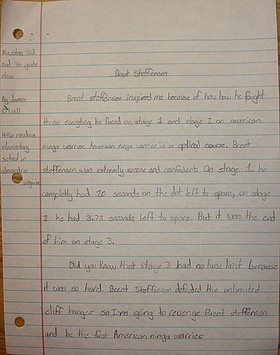 Brent Steffensen
Brent steffensen inspired me because of how how he fought
threw everything he faced on stage 1 and stage 2 on american
ninga warrier. American ninga warrier is a optical course. Brent
steffensen was extremly serene and confidents. On stage 1 he
completly had 20 seconds on the dot left to spare, on stage
2 he had 3.73 seconds left to spare. But it was the end
of him on stage 3.
Did you know that stage 3 had no time limit because
it was so hard. Brent Steffensen defeted the unlimited
cliff hanger. so I'm going to revenge Brent steffensen
and be the first American ninga warrier.
3rd
and 4th grade
class
By James
Hillel
elementary
school in